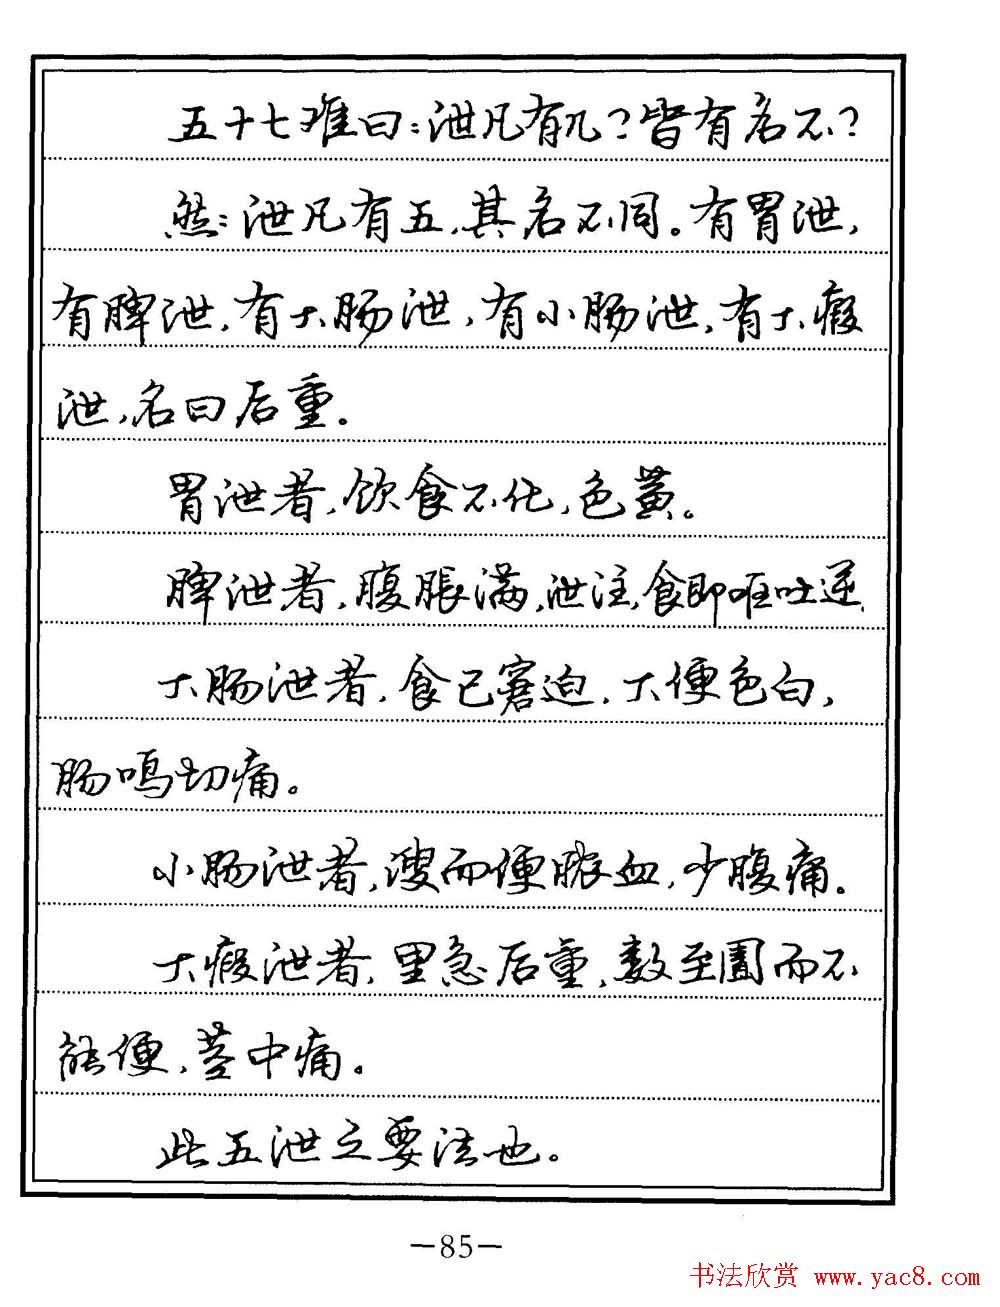 五十七难曰：泄凡有几？皆有名不？
然：泄凡有五，其名不同。有胃泄，
有脾泄，有大肠泄，有小肠泄，有大瘕
泄，名曰后重。
胃泄者，饮食不化，色黄。
脾泄者，腹胀满，泄注，食即呕吐逆。
大肠泄者，食已窘迫，大便色白，
肠鸣切痛。
小肠泄者，溲而便脓血，少腹痛。
大瘕泄者，里急后重，数至圊而不
能便，茎中痛。
此五泄之要法也。
—85—
书法欣赏 www.yac8.com